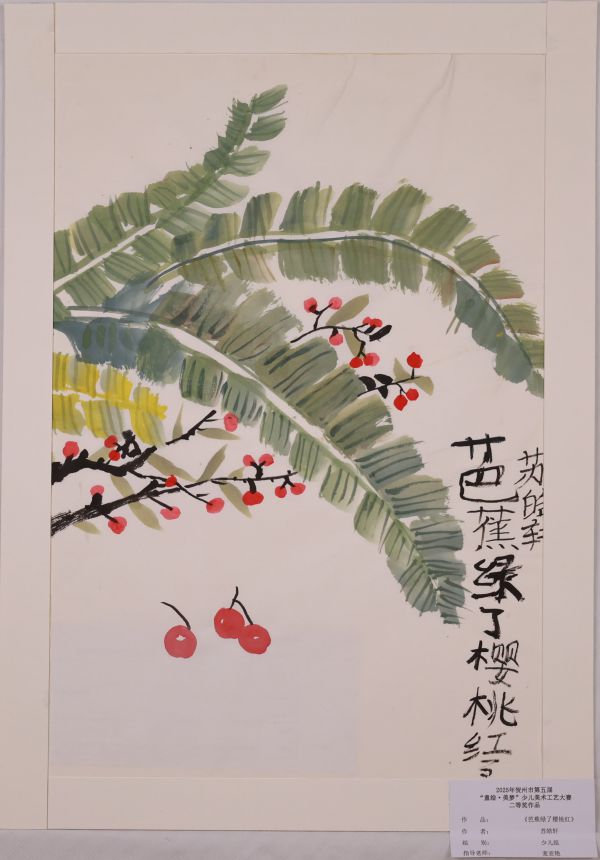 苏皓轩
芭蕉绿了樱桃红了
2025年贺州市第五届
“童绘·美梦”少儿美术工艺大赛
二等奖作品
作 品: 《芭蕉绿了樱桃红》
作 者: 苏皓轩
组 别: 少儿组
指导老师: